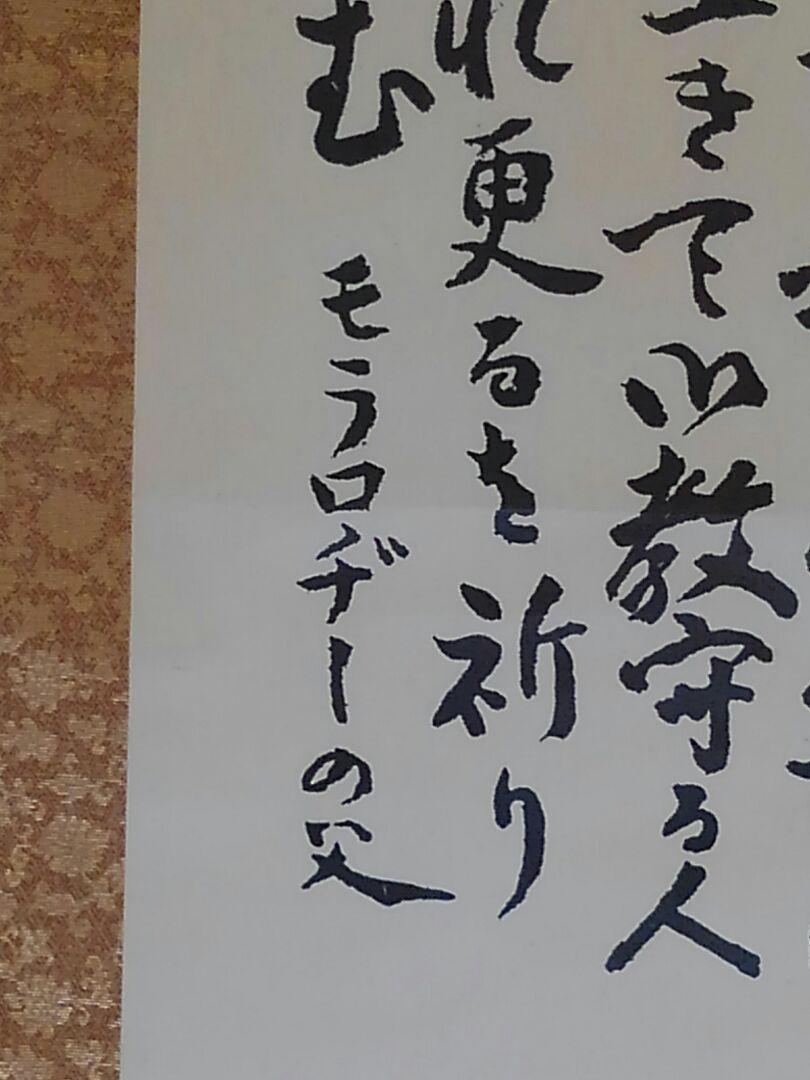 きて御教守る人
れ更るを祈り
む　モラロヂーの父